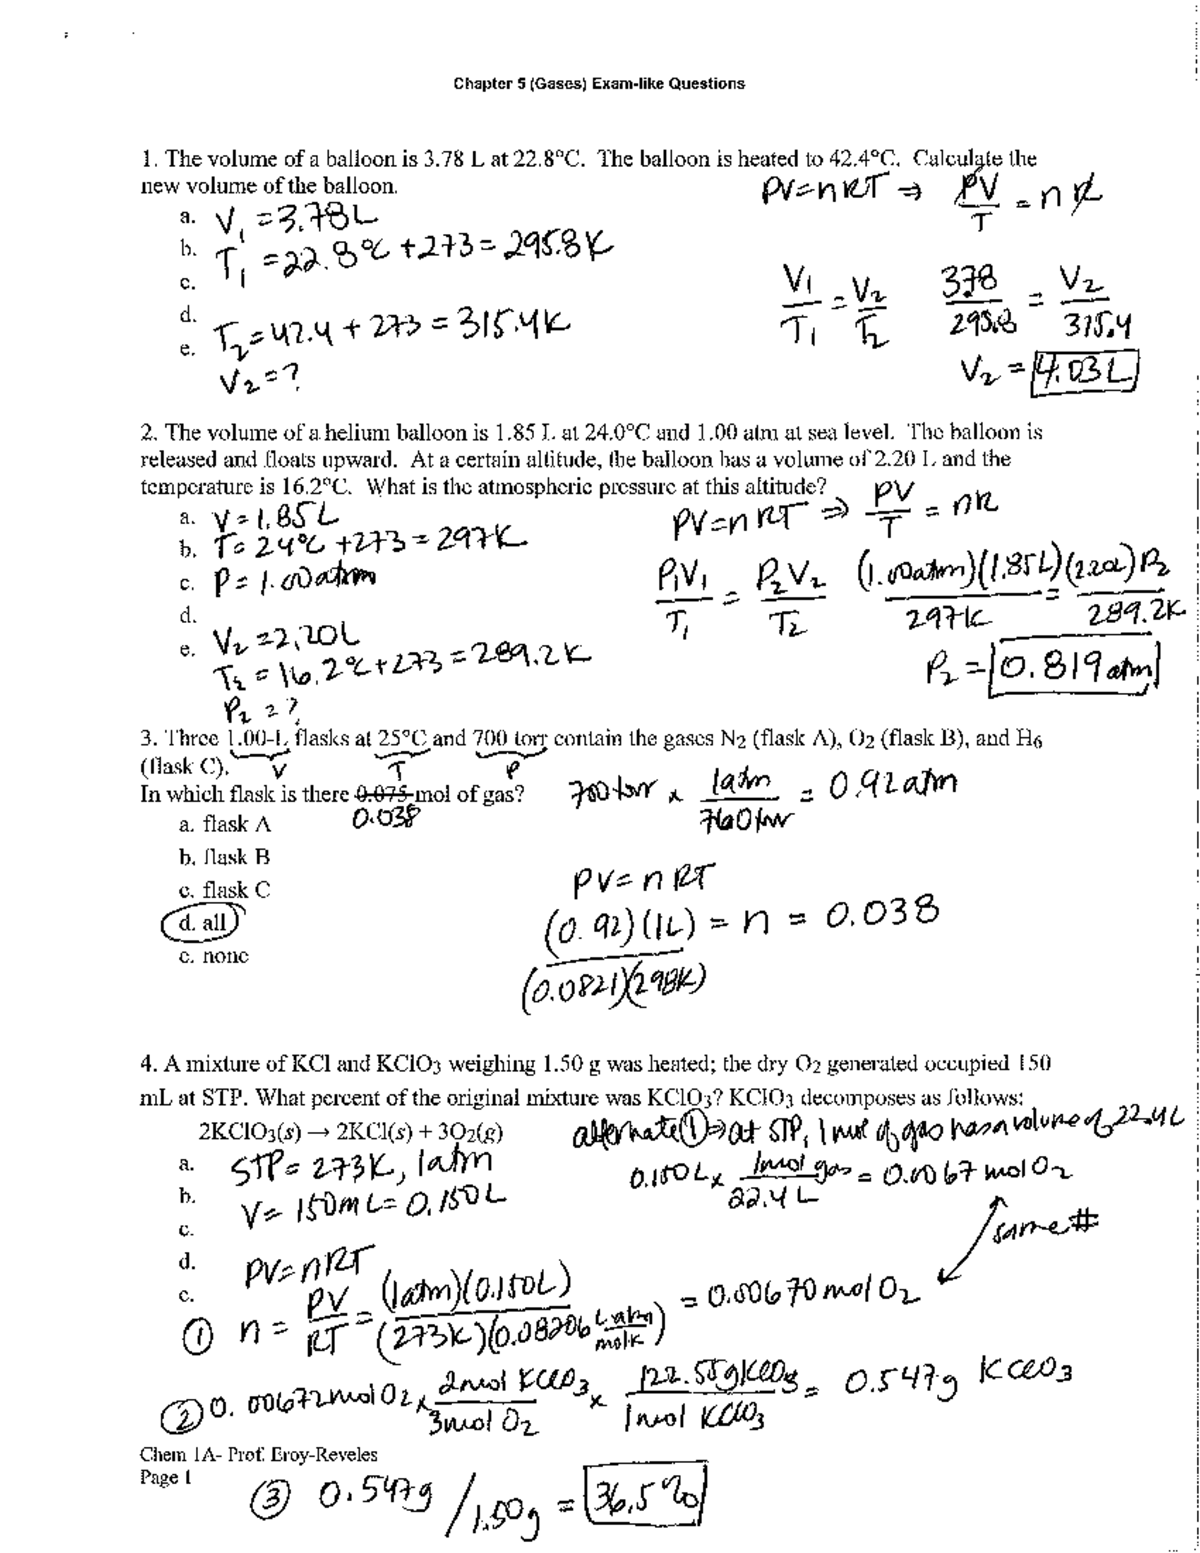 Chapter 5 (Gases) Exam-like Questions
1. The volume of a balloon is 3.78 L at 22.8°C. The balloon is heated to 42.4°C. Calculate the
new volume of the balloon.
PV=nRT ⇒ PV/T = nR
a. V₁ = 3.78L
b. T₁ = 22.8°C + 273 = 295.8K
c.
d.
e. T₂ = 42.4 + 273 = 315.4K
V₂ = ?
V₁/T₁ = V₂/T₂ 3.78/295.8 = V₂/315.4
V₂ = 4.03L
2. The volume of a helium balloon is 1.85 L at 24.0°C and 1.00 atm at sea level. The balloon is
released and floats upward. At a certain altitude, the balloon has a volume of 2.20 L and the
temperature is 16.2°C. What is the atmospheric pressure at this altitude?
PV=nRT ⇒ PV/T = nR
a. V = 1.85L
b. T = 24°C + 273 = 297K
c. P = 1.00atm
d.
e. V₂ = 2.20L
T₂ = 16.2°C + 273 = 289.2K
P₂ = ?
P₁V₁/T₁ = P₂V₂/T₂ (1.00atm)(1.85L)/297K = (2.20L)P₂/289.2K
P₂ = 0.819 atm
3. Three 1.00-L flasks at 25°C and 700 torr contain the gases N2 (flask A), O2 (flask B), and H6
(flask C). V T P
In which flask is there 0.075 mol of gas?
0.038
700torr x 1atm/760torr = 0.92atm
a. flask A
b. flask B
c. flask C
d. all
e. none
PV = nRT
(0.92)(1L)/(0.0821)(298K) = n = 0.038
4. A mixture of KCl and KClO3 weighing 1.50 g was heated; the dry O2 generated occupied 150
mL at STP. What percent of the original mixture was KClO3? KClO3 decomposes as follows:
2KClO3(s) → 2KCl(s) + 3O2(g)
alternate ① ⇒ at STP, 1 mol of gas has a volume of 22.4L
a. STP = 273K, 1atm
0.150L x 1mol gas/22.4L = 0.0067 mol O2
b. V = 150mL = 0.150L
c.
same #
d. PV=nRT
e.
① n = PV/RT = (1atm)(0.150L)/(273K)(0.08206 L atm/mol K) = 0.00670 mol O2
② 0.00672mol O2 x 2mol KClO3/3mol O2 x 122.55g KClO3/1mol KClO3 = 0.547g KClO3
Chem 1A- Prof. Eroy-Reveles
Page 1
③ 0.547g/1.50g = 36.5%